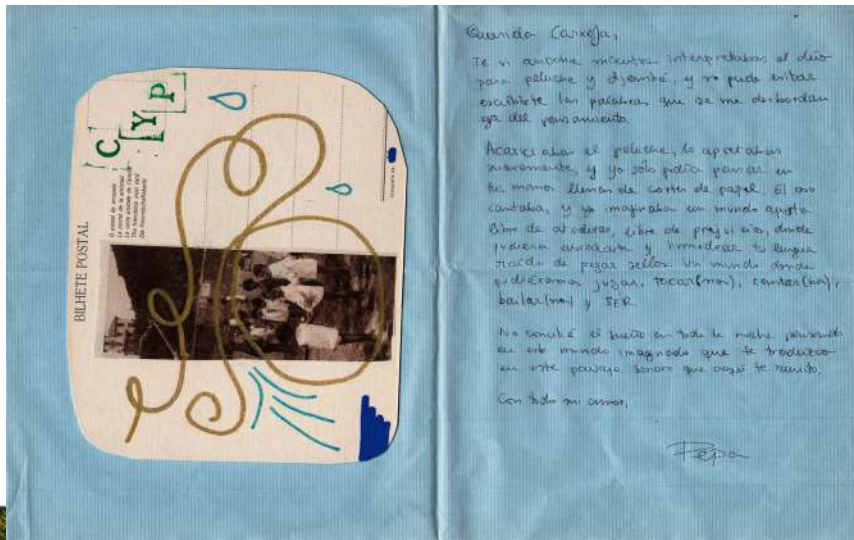 C Y P
BILHETE POSTAL
O postal da amizade
La postal de la amistad
La carte postale de l'amitié
The friendship post card
Die Freundschaftskarte
Querida Carxofa,
Te vi anoche mientras interpretabas el dúo
para peluche y djembé, y no pude evitar
escribirte las palabras que se me desbordan
ya del pensamiento.
Acariciabas el peluche, lo apretabas
suavemente, y yo sólo podía pensar en
tus manos llenas de cortes de papel. El oso
cantaba, y yo imaginaba un mundo
libre de ataduras, libre de prejuicios, donde
pudiera acercarme y humedecer tu lengua
de pegar sellos. Un mundo donde
pudiéramos jugar, tocar(nos), cantar(nos),
bailar(nos) y SER.
No concilié el sueño en toda la noche pensando
en este mundo imaginado que te traduzco
en este paisaje sonoro que aquí te remito.
Con todo mi amor,
Pepa